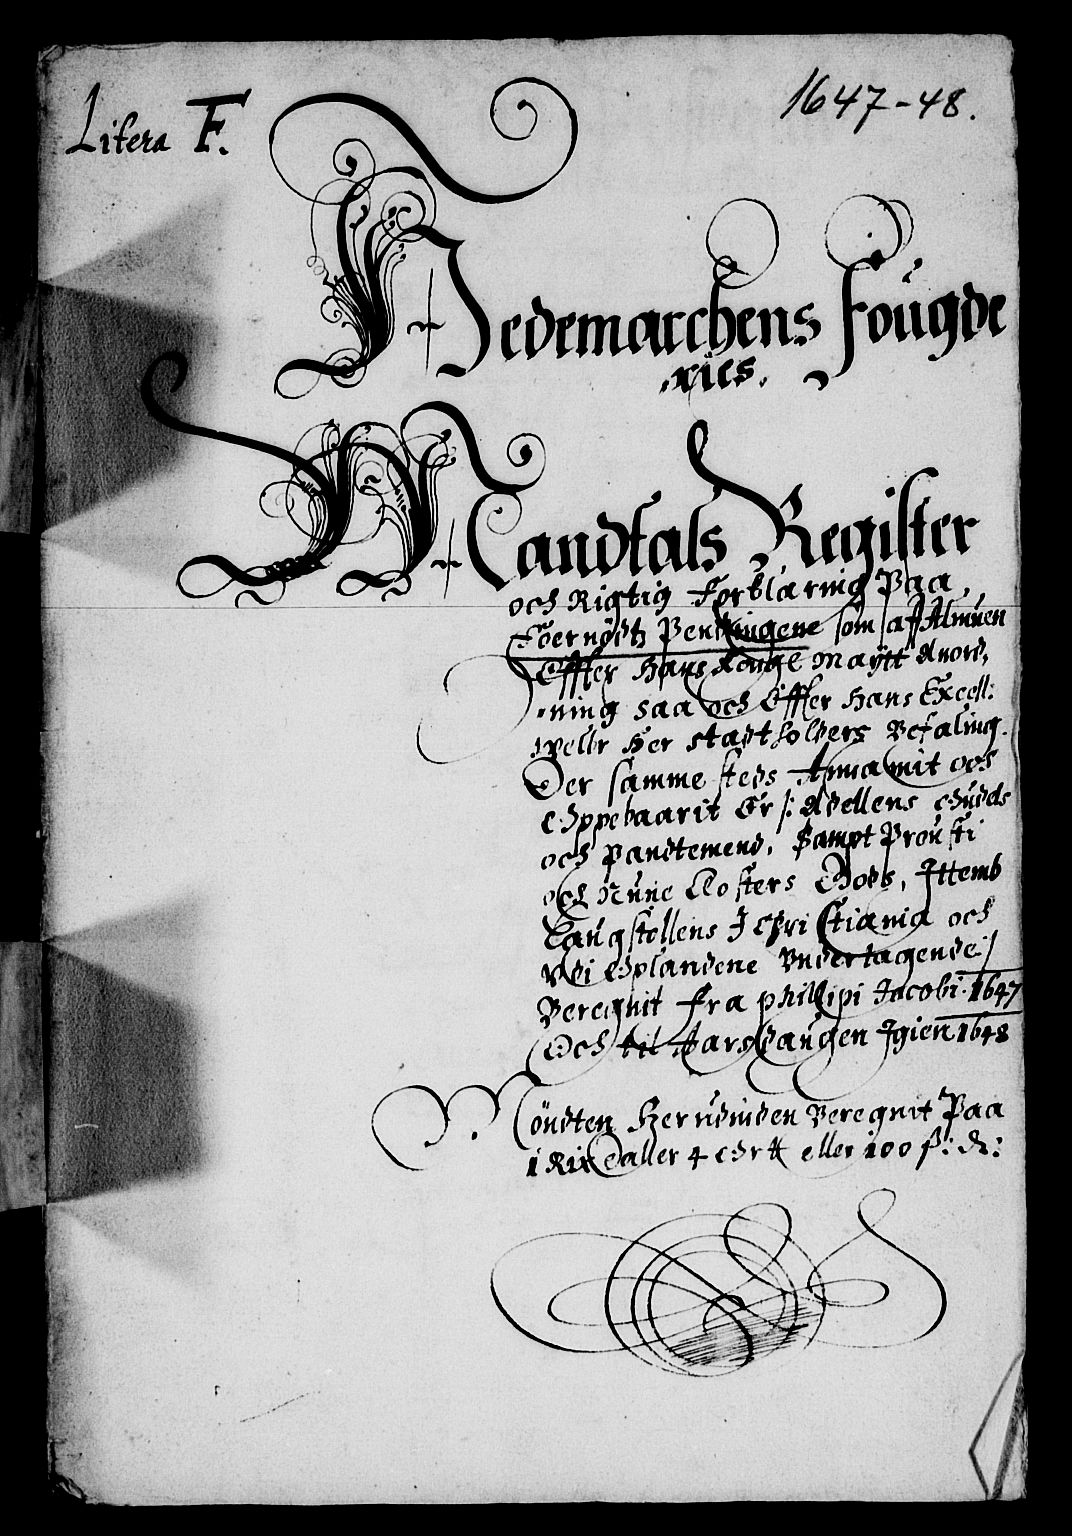 Litera F.
1647-48.
Hedemarchens Fougde
ries.
Mandtals Register
och Rigtig Forklaring Paa
Foernödtz Pendingene som aff Almuen
Effter Hans Konge Maÿtt Anord,
ning saa och Effter Hans Excell:
velbr Her Stadtholders Befaling.
Der samme steds Annamit och
Oppebaarit Er /: Adellens Guods
och Pandtemend, Sampt Prousti
och Nune Closters Gods, Ittemb
Laugstollens J Christiania och
Vdi Oplandene Vndertagende :/
Beregnit Fra Phillipi Jacobi 1647
Och til Aarsdaugen Jgien 1648
Möndten Herudinden Beregnit Paa
1 Rix Daller 4 Ort eller 100 ß: d: